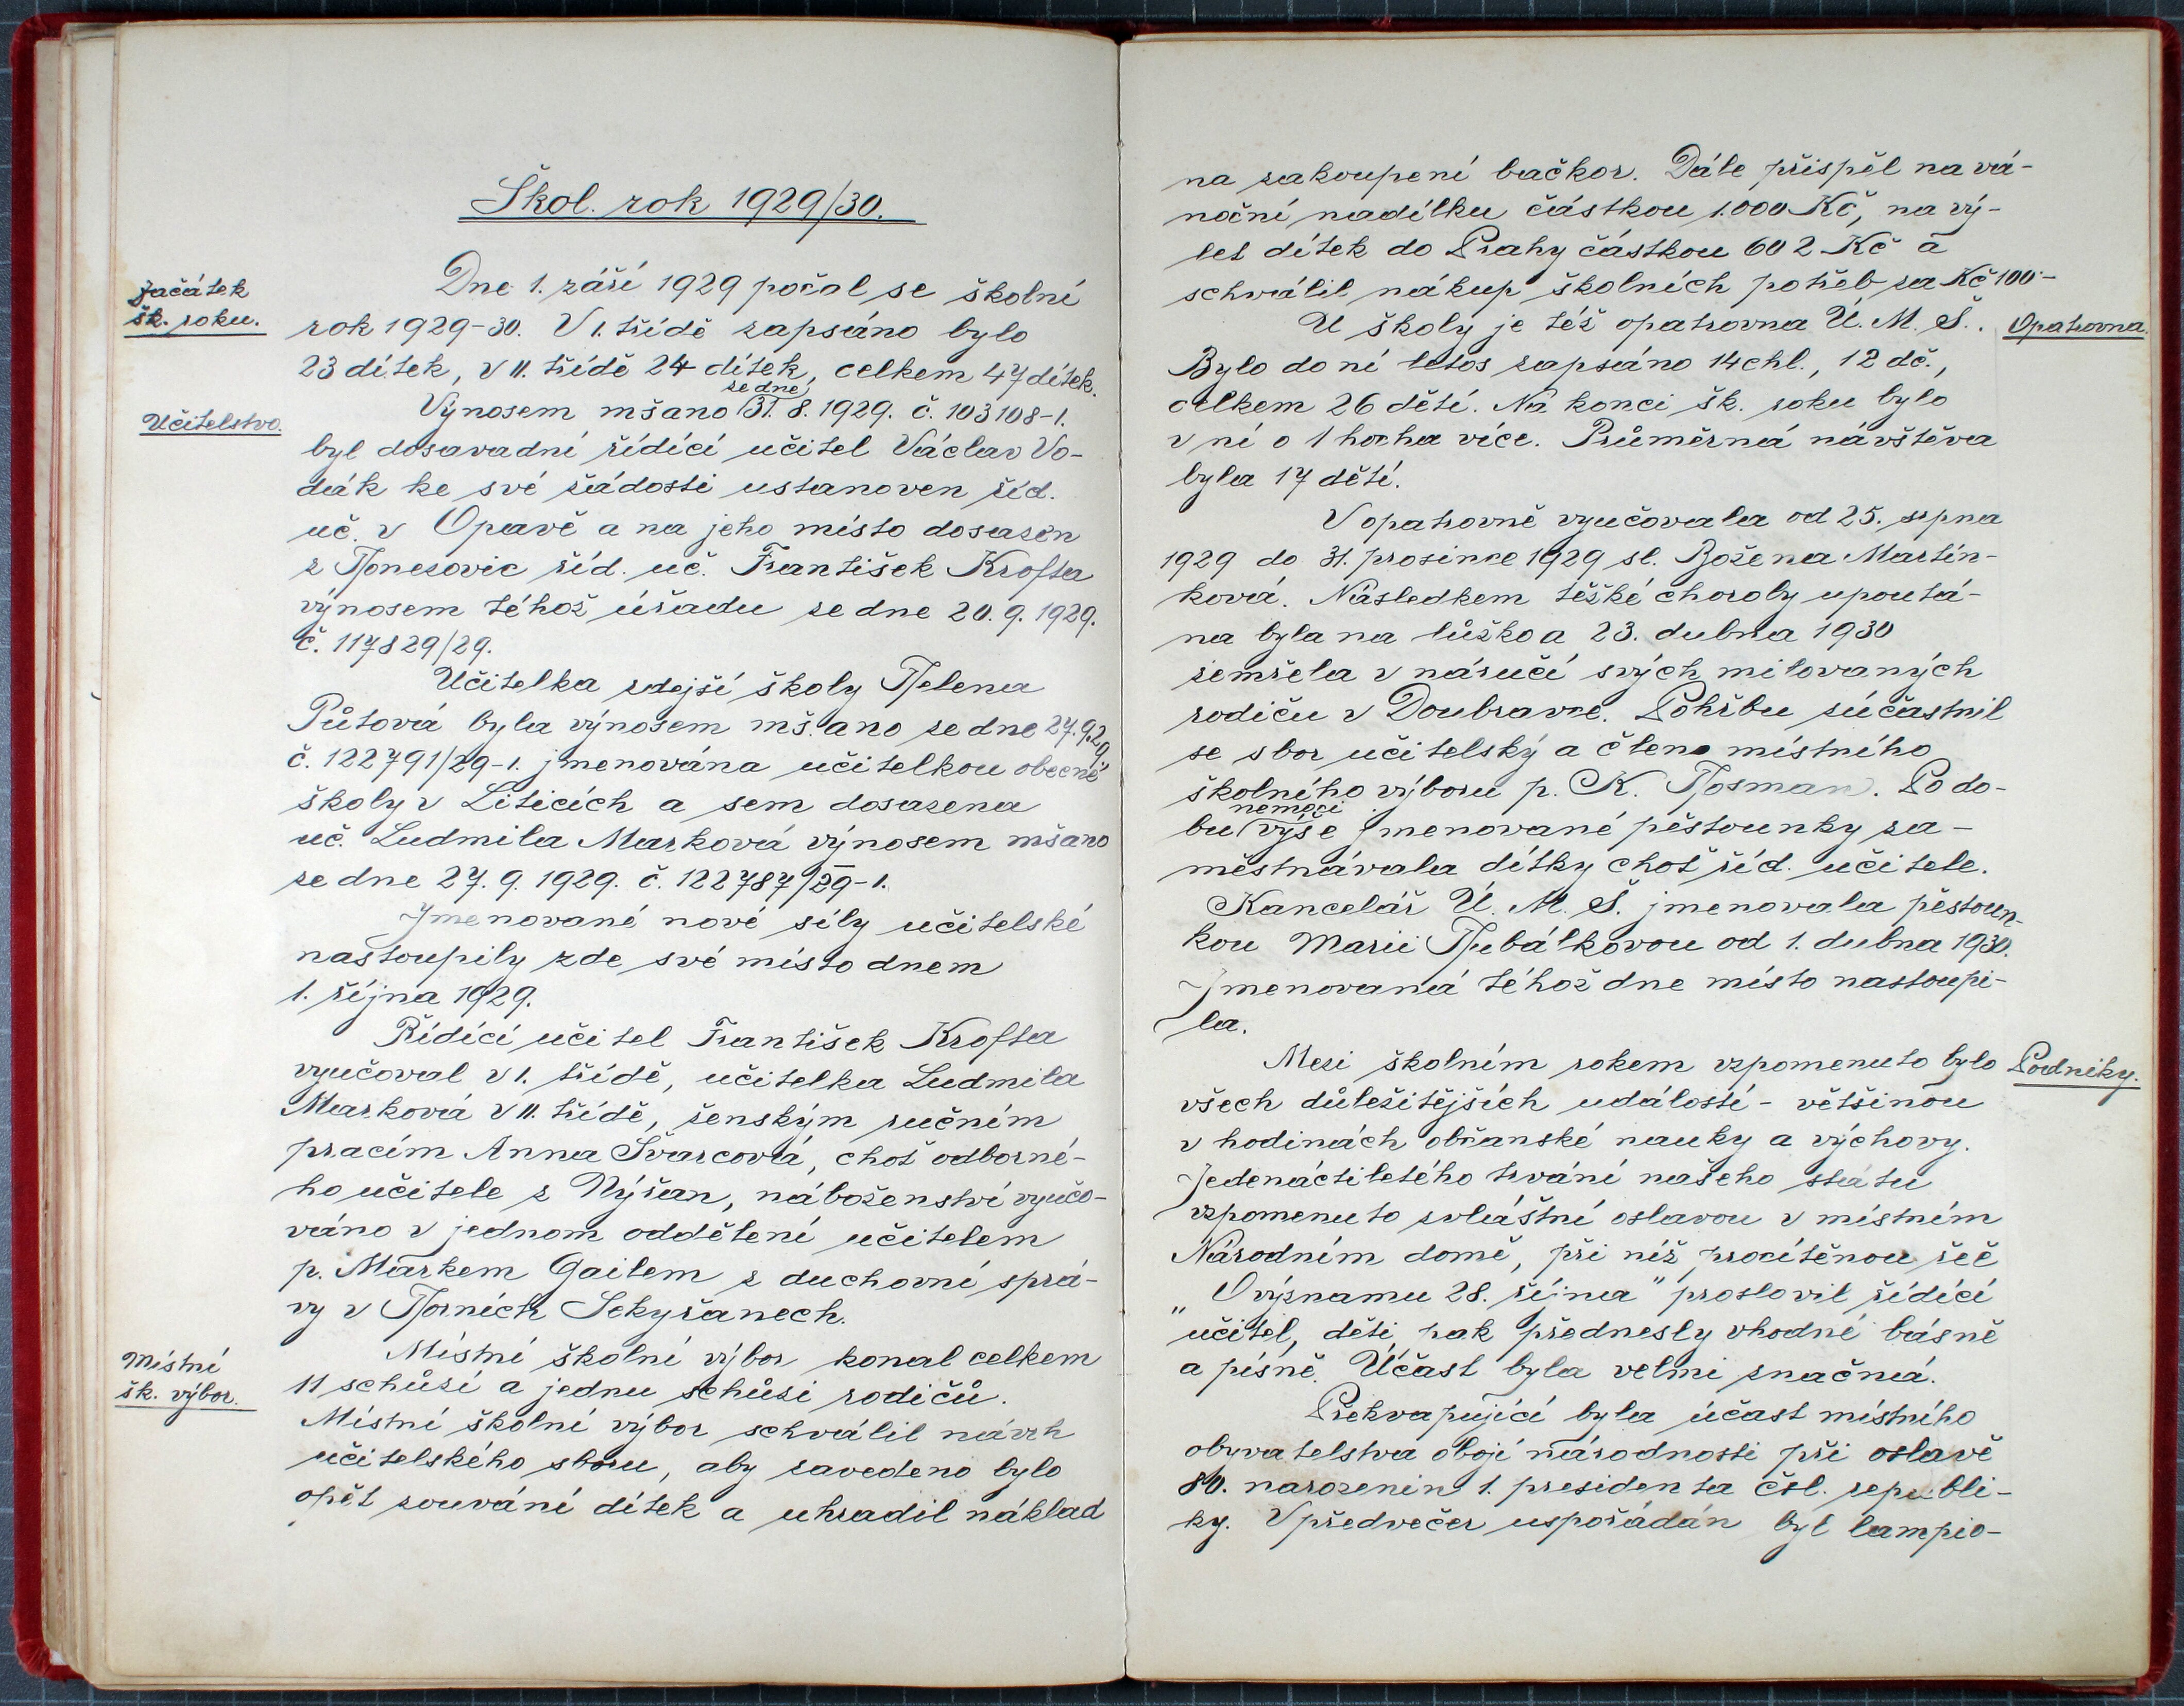 Škol. rok 1929/30.
Začátek
šk. roku.
Dne 1. září 1929 počal se školní
rok 1929-30. V I. třídě zapsáno bylo
23 dítek, v II. třídě 24 dítek, celkem 47 dítek.
Učitelstvo.
ze dne
Výnosem mšano 31. 8. 1929. č. 103108-I.
byl dosavadní řídící učitel Václav Vo-
dák ke své žádosti ustanoven říd.
uč. v Opavě a na jeho místo dosazen
z Honezovic říd. uč. František Krofta
výnosem téhož úřadu ze dne 20. 9. 1929.
č. 117829/29.
Učitelka zdejší školy Helena
Půtová byla výnosem mš. ano ze dne 27. 9. 29
č. 122791/29-I. jmenována učitelkou obecné
školy v Liticích a sem dosazena
uč. Ludmila Marková výnosem mšano
ze dne 27. 9. 1929. č. 122787/29-I.
Jmenované nové síly učitelské
nastoupily zde své místo dnem
1. října 1929.
Řídící učitel František Krofta
vyučoval v I. třídě, učitelka Ludmila
Marková v II. třídě, ženským ručním
pracím Anna Švarcová, choť odborné-
ho učitele z Nýřan, náboženství vyučo-
váno v jednom oddělení učitelem
p. Markem Gailem z duchovní sprá-
vy v Horních Sekyřanech.
Místní
šk. výbor.
Místní školní výbor konal celkem
11 schůzí a jednu schůzi rodičů.
Místní školní výbor schválil návrh
učitelského sboru, aby zavedeno bylo
opět zouvání dítek a uhradil náklad
na zakoupení bačkor. Dále přispěl na vá-
noční nadílku částkou 1.000 Kč, na vý-
let dítek do Prahy částkou 602 Kč a
schválil nákup školních potřeb za Kč 100·-
U školy je též opatrovna Ú. M. Š..
Opatrovna.
Bylo do ní letos zapsáno 14 chl., 12 dč.,
celkem 26 dětí. Na konci šk. roku bylo
v ní o 1 hocha více. Průměrná návštěva
byla 17 dětí.
V opatrovně vyučovala od 25. srpna
1929 do 31. prosince 1929 sl. Božena Martín-
ková. Následkem těžké choroby upoutá-
na byla na lůžko a 23. dubna 1930
zemřela v náručí svých milovaných
rodiču v Doubravce. Pohřbu súčastnil
se sbor učitelský a člen místního
školního výboru p. K. Hosman. Po do-
nemoci
bu výše jmenované pěstounky za-
městnávala dítky choť říd. učitele.
Kancelář Ú. M. Š. jmenovala pěstoun-
kou Marii Hubálkovou od 1. dubna 1930.
Jmenovaná téhož dne místo nastoupi-
la.
Mezi školním rokem vzpomenuto bylo
Podniky.
všech důležitějších událostí - většinou
v hodinách občanské nauky a výchovy.
Jedenáctiletého trvání našeho státu
vzpomenuto zvláštní oslavou v místním
Národním domě, při níž procítěnou řeč
„O významu 28. října" proslovil řídící
učitel, děti pak přednesly vhodné básně
a písně. Účast byla velmi značná.
Překvapující byla účast místního
obyvatelstva obojí národnosti při oslavě
80. narozenin 1. presidenta čsl. republi-
ky. V předvečer uspořádán byl lampio-